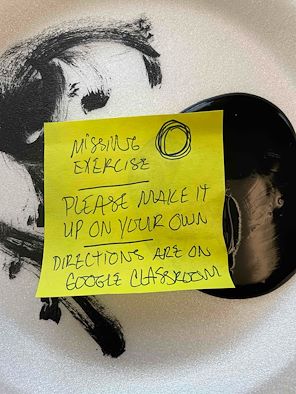 MISSING
EXERCISE
PLEASE MAKE IT
UP ON YOUR OWN
DIRECTIONS ARE ON
GOOGLE CLASSROOM